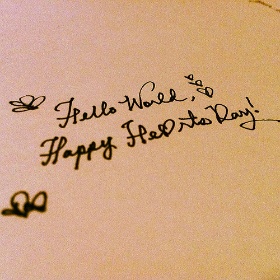 Hello World,
Happy Hearts Day!